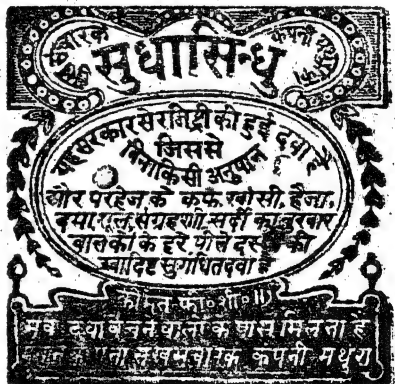 सुधासिन्धु
यह सरकार से रजिष्ट्री की हुई दवा है
जिससे
बिना किसी अनुपान
और परहेज के कफ, खांसी, हैजा,
दमा, शूल, संग्रहणी, सर्दी का बुखार
बालकों के हरे पीले दस्तों की
स्वादिष्ट सुगंधित दवा है
कीमत फी० शी० ॥)
सब दवा बेचने वालों के पास मिलता है
कंपनी मथुरा